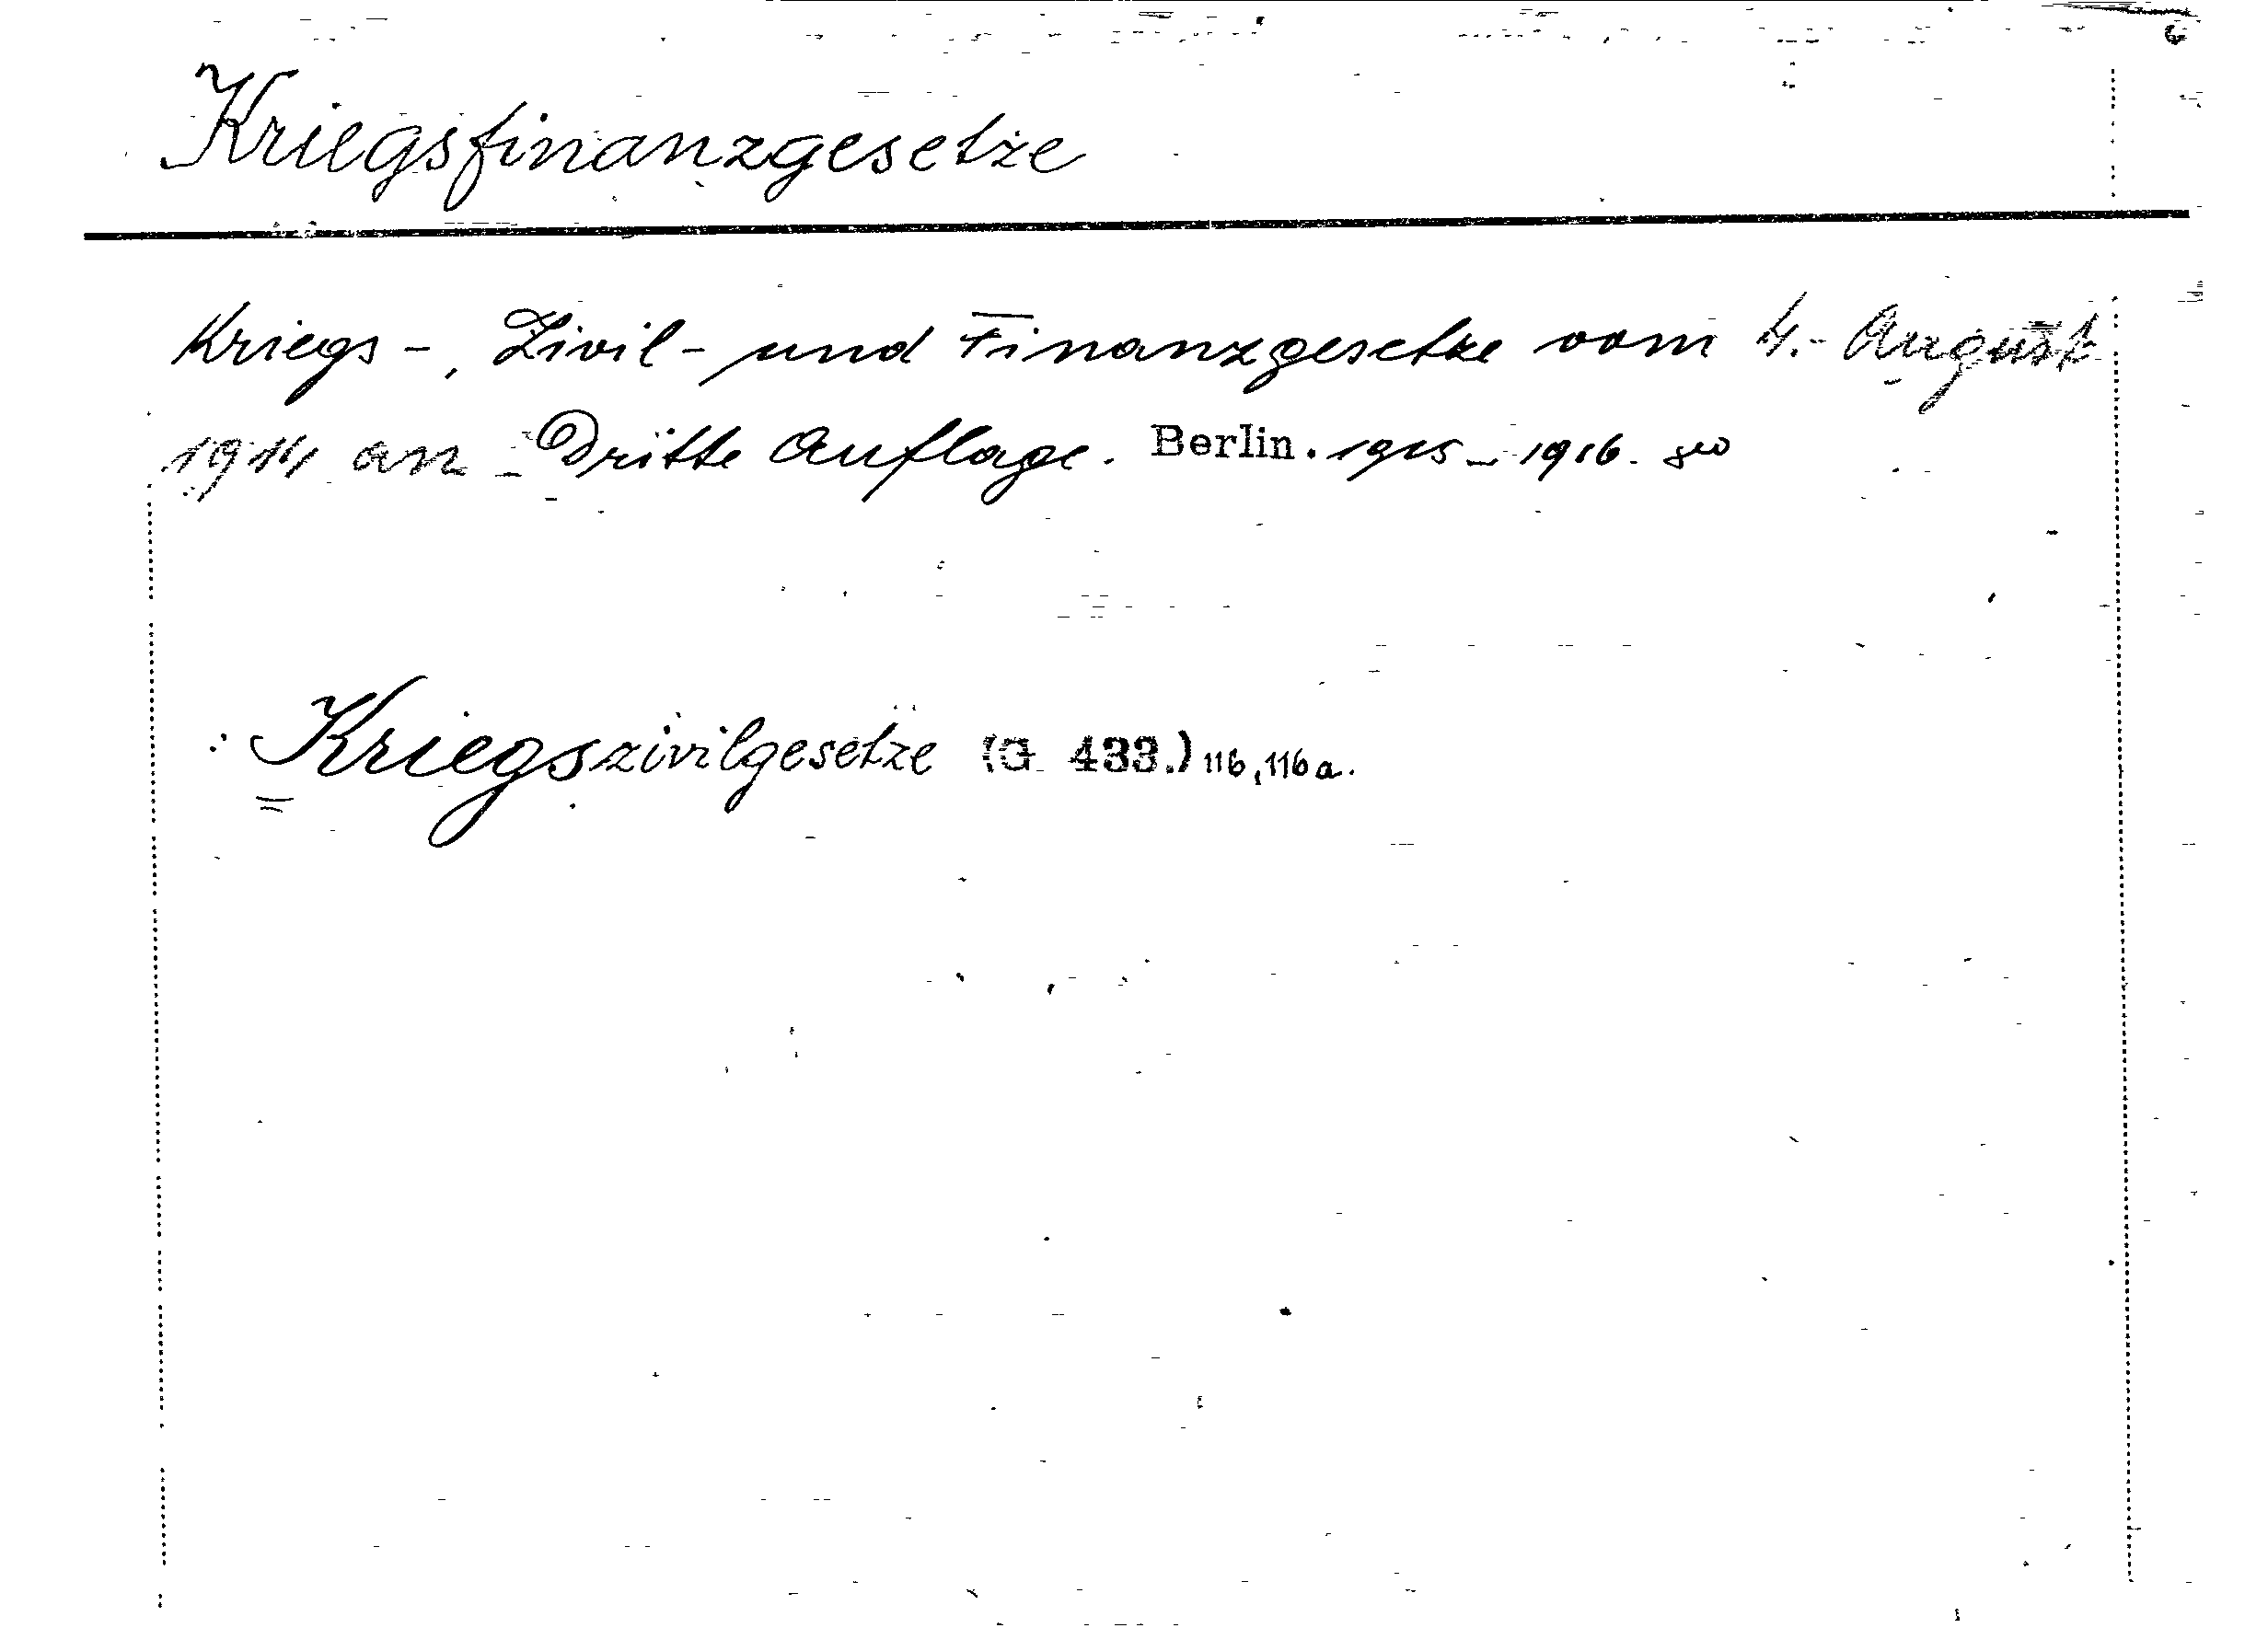 Kriegsfinanzgesetze
Kriegs-, Zivil- und Finanzgesetze vom 4. August
1914 an. Dritte Auflage. Berlin. 1915-1916. 8vo
Kriegszivilgesetze (G 433.) 116, 116a.